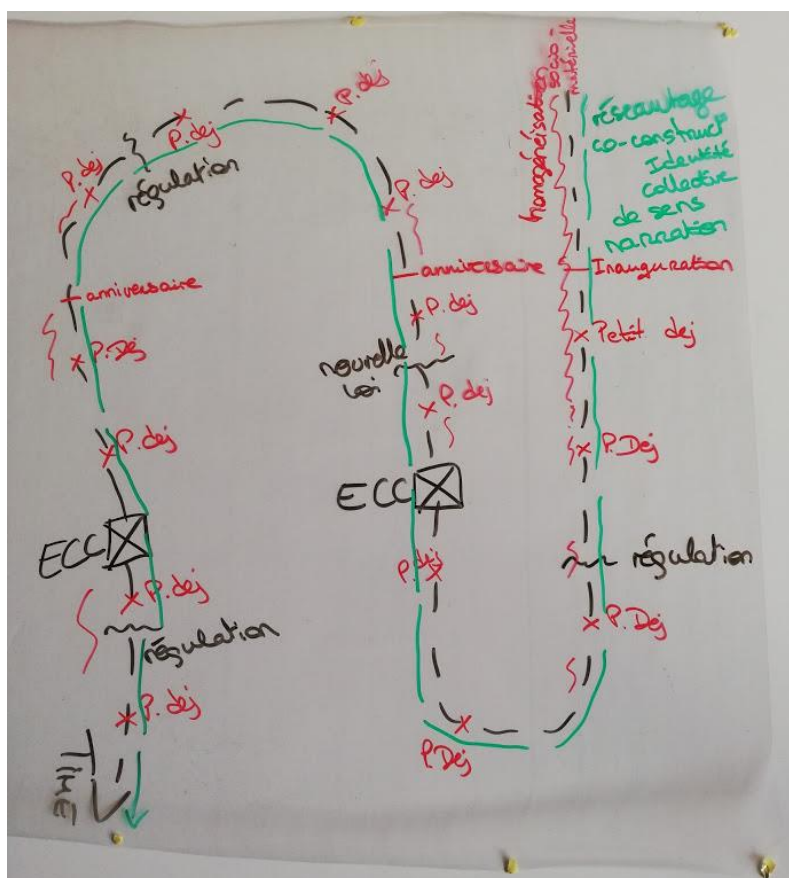 P.dej
P.dej
régulation
anniversaire
P.Dej
P.dej
ECC
P.dej
régulation
P.dej
TIME
P.dej
P.dej
anniversaire
P.dej
nouvelle
loi
P.dej
ECC
P.dej
P.Dej
homogénéisation
socio-
matérielle
réseautage
co-construct°
Identité
collective
de sens
narration
Inauguration
Petit dej
P.Dej
régulation
P.Dej